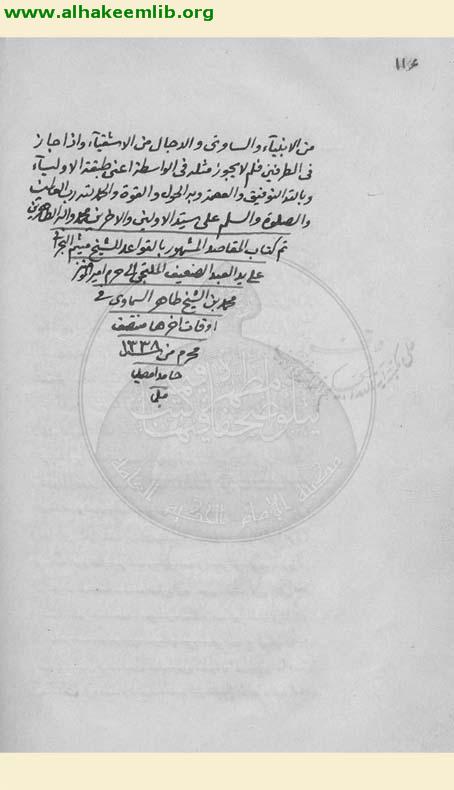 www.alhakeemlib.org
١١٤
من الانبيآء والساوى والدجال من الاشقيآء واذا جاز
فى الطرفين فلم لا يجوز مثله فى الواسطة اعنى طبقة الاوليآء
وبالله التوفيق والعصمة وبه الحول والقوة والحمد لله رب العالمين
والصلوة والسلم على سيد الاولين والاخرين محمد واله الطاهرين
تم كتاب المقاصد المشهور بالقواعد للشيخ ميثم البحرانى
على يد العبد الضعيف الملتجى الى حرم امير المؤمنين
محمد بن الشيخ طاهر السماوى فى
اوقات اخرها منتصف
محرم من سنة ١٣٣٨
حامدا مصليا